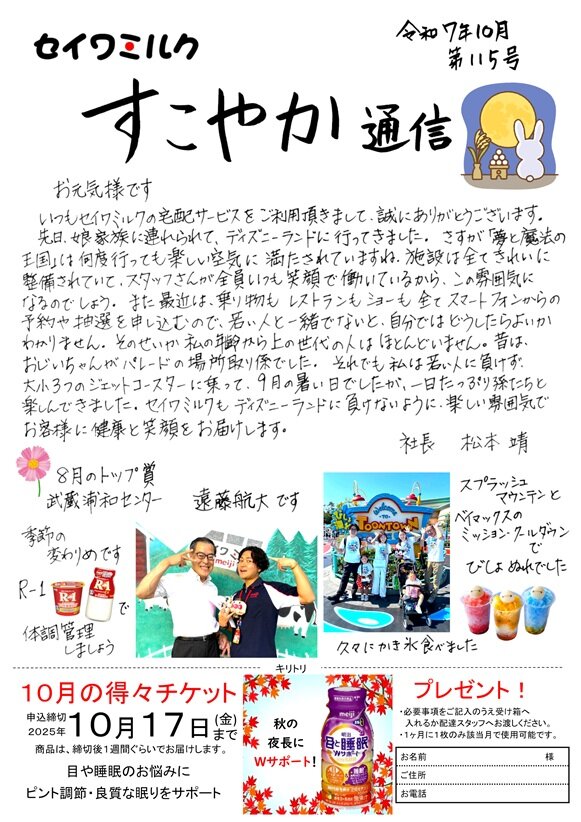 セイワミルク
令和7年10月
第115号
すこやか通信
お元気様です
いつもセイワミルクの宅配サービスをご利用頂きまして、誠にありがとうございます。
先日、娘家族に連れられて、ディズニーランドに行ってきました。さすが「夢と魔法の
王国」は何度行っても楽しい空気に満たされていますね。施設は全てきれいに
整備されていて、スタッフさんが全員いつも笑顔で働いているから、この雰囲気に
なるのでしょう。また最近は、乗り物もレストランもショーも全てスマートフォンからの
予約や抽選を申し込むので、若い人と一緒でないと、自分ではどうしたらよいか
わかりません。そのせいか私の年齢から上の世代の人はほとんどいません。昔は、
おじいちゃんがパレードの場所取り係でした。それでも私は若い人に負けず、
大小3つのジェットコースターに乗って、9月の暑い日でしたが、一日たっぷり孫たちと
楽しんできました。セイワミルクもディズニーランドに負けないように、楽しい雰囲気で
お客様に健康と笑顔をお届けします。
社長 松本 靖
8月のトップ賞
武蔵浦和センター 遠藤航大です
季節の
変わりめです
R-1
で
体調管理
しましょう
R-1
R-1
meiji
Welcome
TO
TOONTOWN
スプラッシュ
マウンテンと
ベイマックスの
ミッションクールダウン
で
びしょぬれでした
久々にかき氷食べました
キリトリ
10月の得々チケット
申込締切
2025年10月17日(金)まで
商品は、締切後1週間ぐらいでお届けします。
目や睡眠のお悩みに
ピント調節・良質な眠りをサポート
秋の
夜長に
Wサポート!
meiji
明治
目と睡眠
Wサポート
プレゼント!
・必要事項をご記入のうえ受け箱へ
入れるか配達スタッフへお渡しください。
・1ヶ月に1枚のみ該当月で使用可能です。
お名前 様
ご住所
お電話